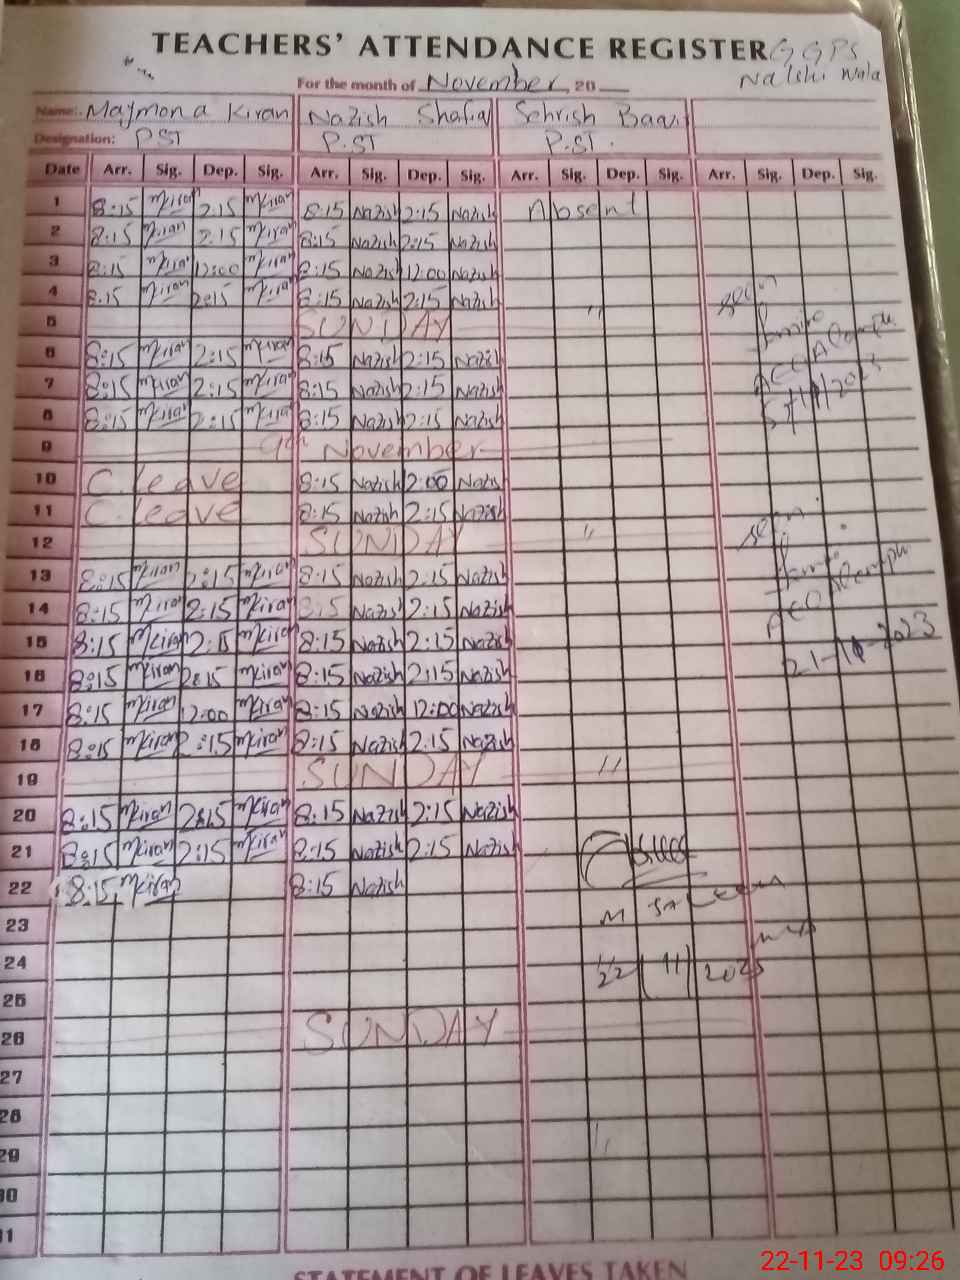 TEACHERS' ATTENDANCE REGISTER GGPS
For the month of November 20 Nalshi Wala
Name:. Maymona Kiran Nazish Shafiq Sehrish
Designation: PST P.ST P.ST.
Date Arr. Sig. Dep. Sig. Arr. Sig. Dep. Sig. Arr. Sig. Dep. Sig. Arr. Sig. Dep. Sig.
1 8:15 mkiran 2:15 mkiran 8:15 Nazish 2:15 Nazish Absent
2 8:15 mkiran 2:15 mkiran 8:15 Nazish 2:15 Nazish
3 8:15 mkiran 12:00 mkiran 8:15 Nazish 12:00 Nazish
4 8:15 mkiran 2:15 mkiran 8:15 Nazish 2:15 Nazish seen
5 SUNDAY "
6 8:15 mkiran 2:15 mkiran 8:15 Nazish 2:15 Nazish
7 8:15 mkiran 2:15 mkiran 8:15 Nazish 2:15 Nazish
8 8:15 mkiran 2:15 mkiran 8:15 Nazish 2:15 Nazish
9 9th November
10 C.leave 8:15 Nazish 2:00 Nazish
11 C.leave 8:15 Nazish 2:15 Nazish
12 SUNDAY " seen
13 8:15 mkiran 2:15 mkiran 8:15 Nazish 2:15 Nazish
14 8:15 mkiran 2:15 mkiran 8:15 Nazish 2:15 Nazish
15 8:15 mkiran 2:15 mkiran 8:15 Nazish 2:15 Nazish
16 8:15 mkiran 2:15 mkiran 8:15 Nazish 2:15 Nazish
17 8:15 mkiran 12:00 mkiran 8:15 Nazish 12:00 Nazish
18 8:15 mkiran 2:15 mkiran 8:15 Nazish 2:15 Nazish
19 SUNDAY "
20 8:15 mkiran 2:15 mkiran 8:15 Nazish 2:15 Nazish
21 8:15 mkiran 2:15 mkiran 8:15 Nazish 2:15 Nazish
22 8:15 mkiran 8:15 Nazish
23 M Saleem
24 22/11/2023
25
26 SUNDAY
27
28
29
30
31
STATEMENT OF LEAVES TAKEN
22-11-23 09:26